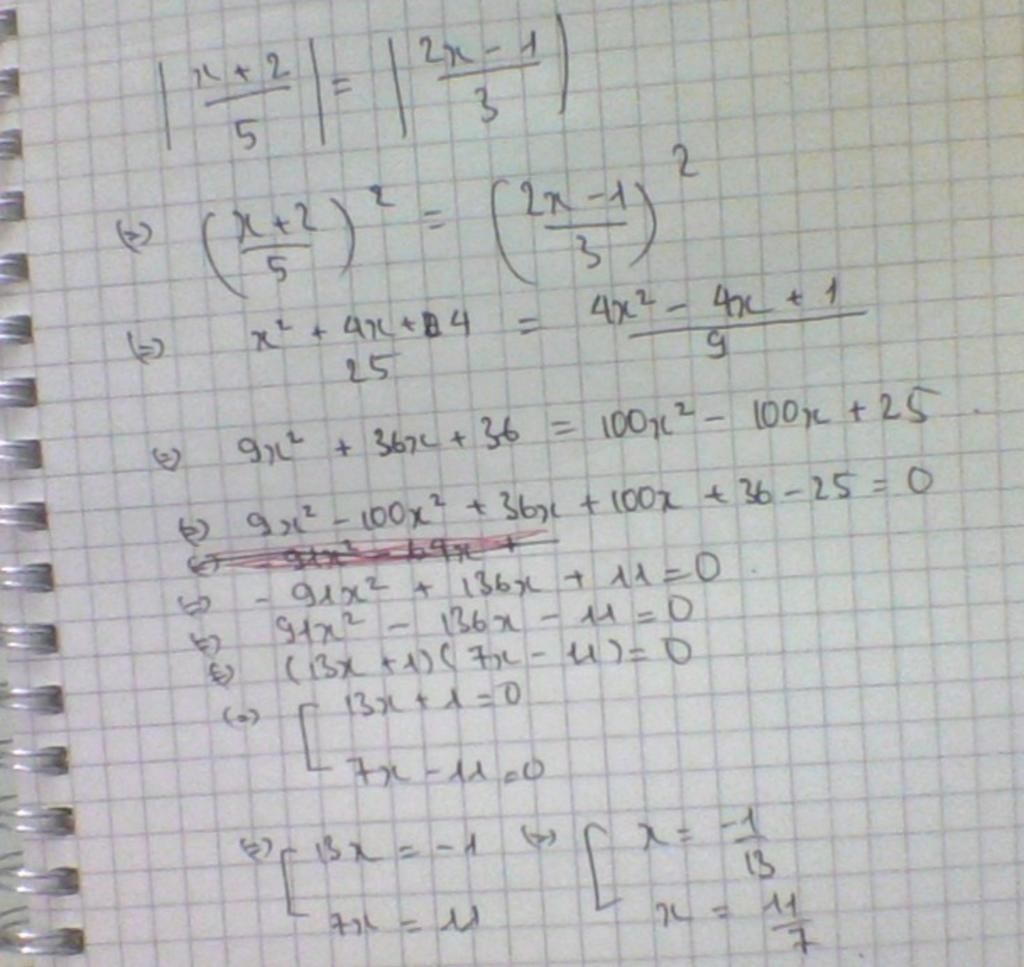 |(x + 2)/5| = |(2x - 1)/3|
(=) ((x + 2)/5)² = ((2x - 1)/3)²
(=) (x² + 4x + 4)/25 = (4x² - 4x + 1)/9
(=) 9x² + 36x + 36 = 100x² - 100x + 25
(=) 9x² - 100x² + 36x + 100x + 36 - 25 = 0
(=) - 91x² + 136x + 11 = 0
(=) 91x² - 136x - 11 = 0
(=) (13x + 1)(7x - 11) = 0
(=) [ 13x + 1 = 0
7x - 11 = 0
(=) [ 13x = -1 (=) [ x = -1/13
7x = 11 x = 11/7